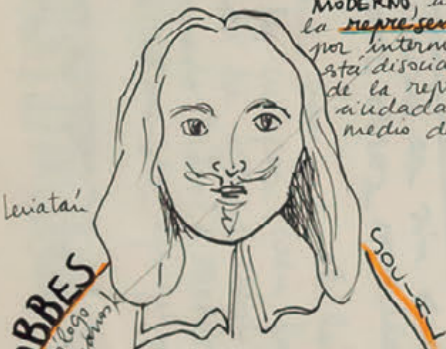 MODERNO,
la represen
por interm
está disocia
de la rep
ciudada
medio d
Leviatán
OBBES
SOCIAL